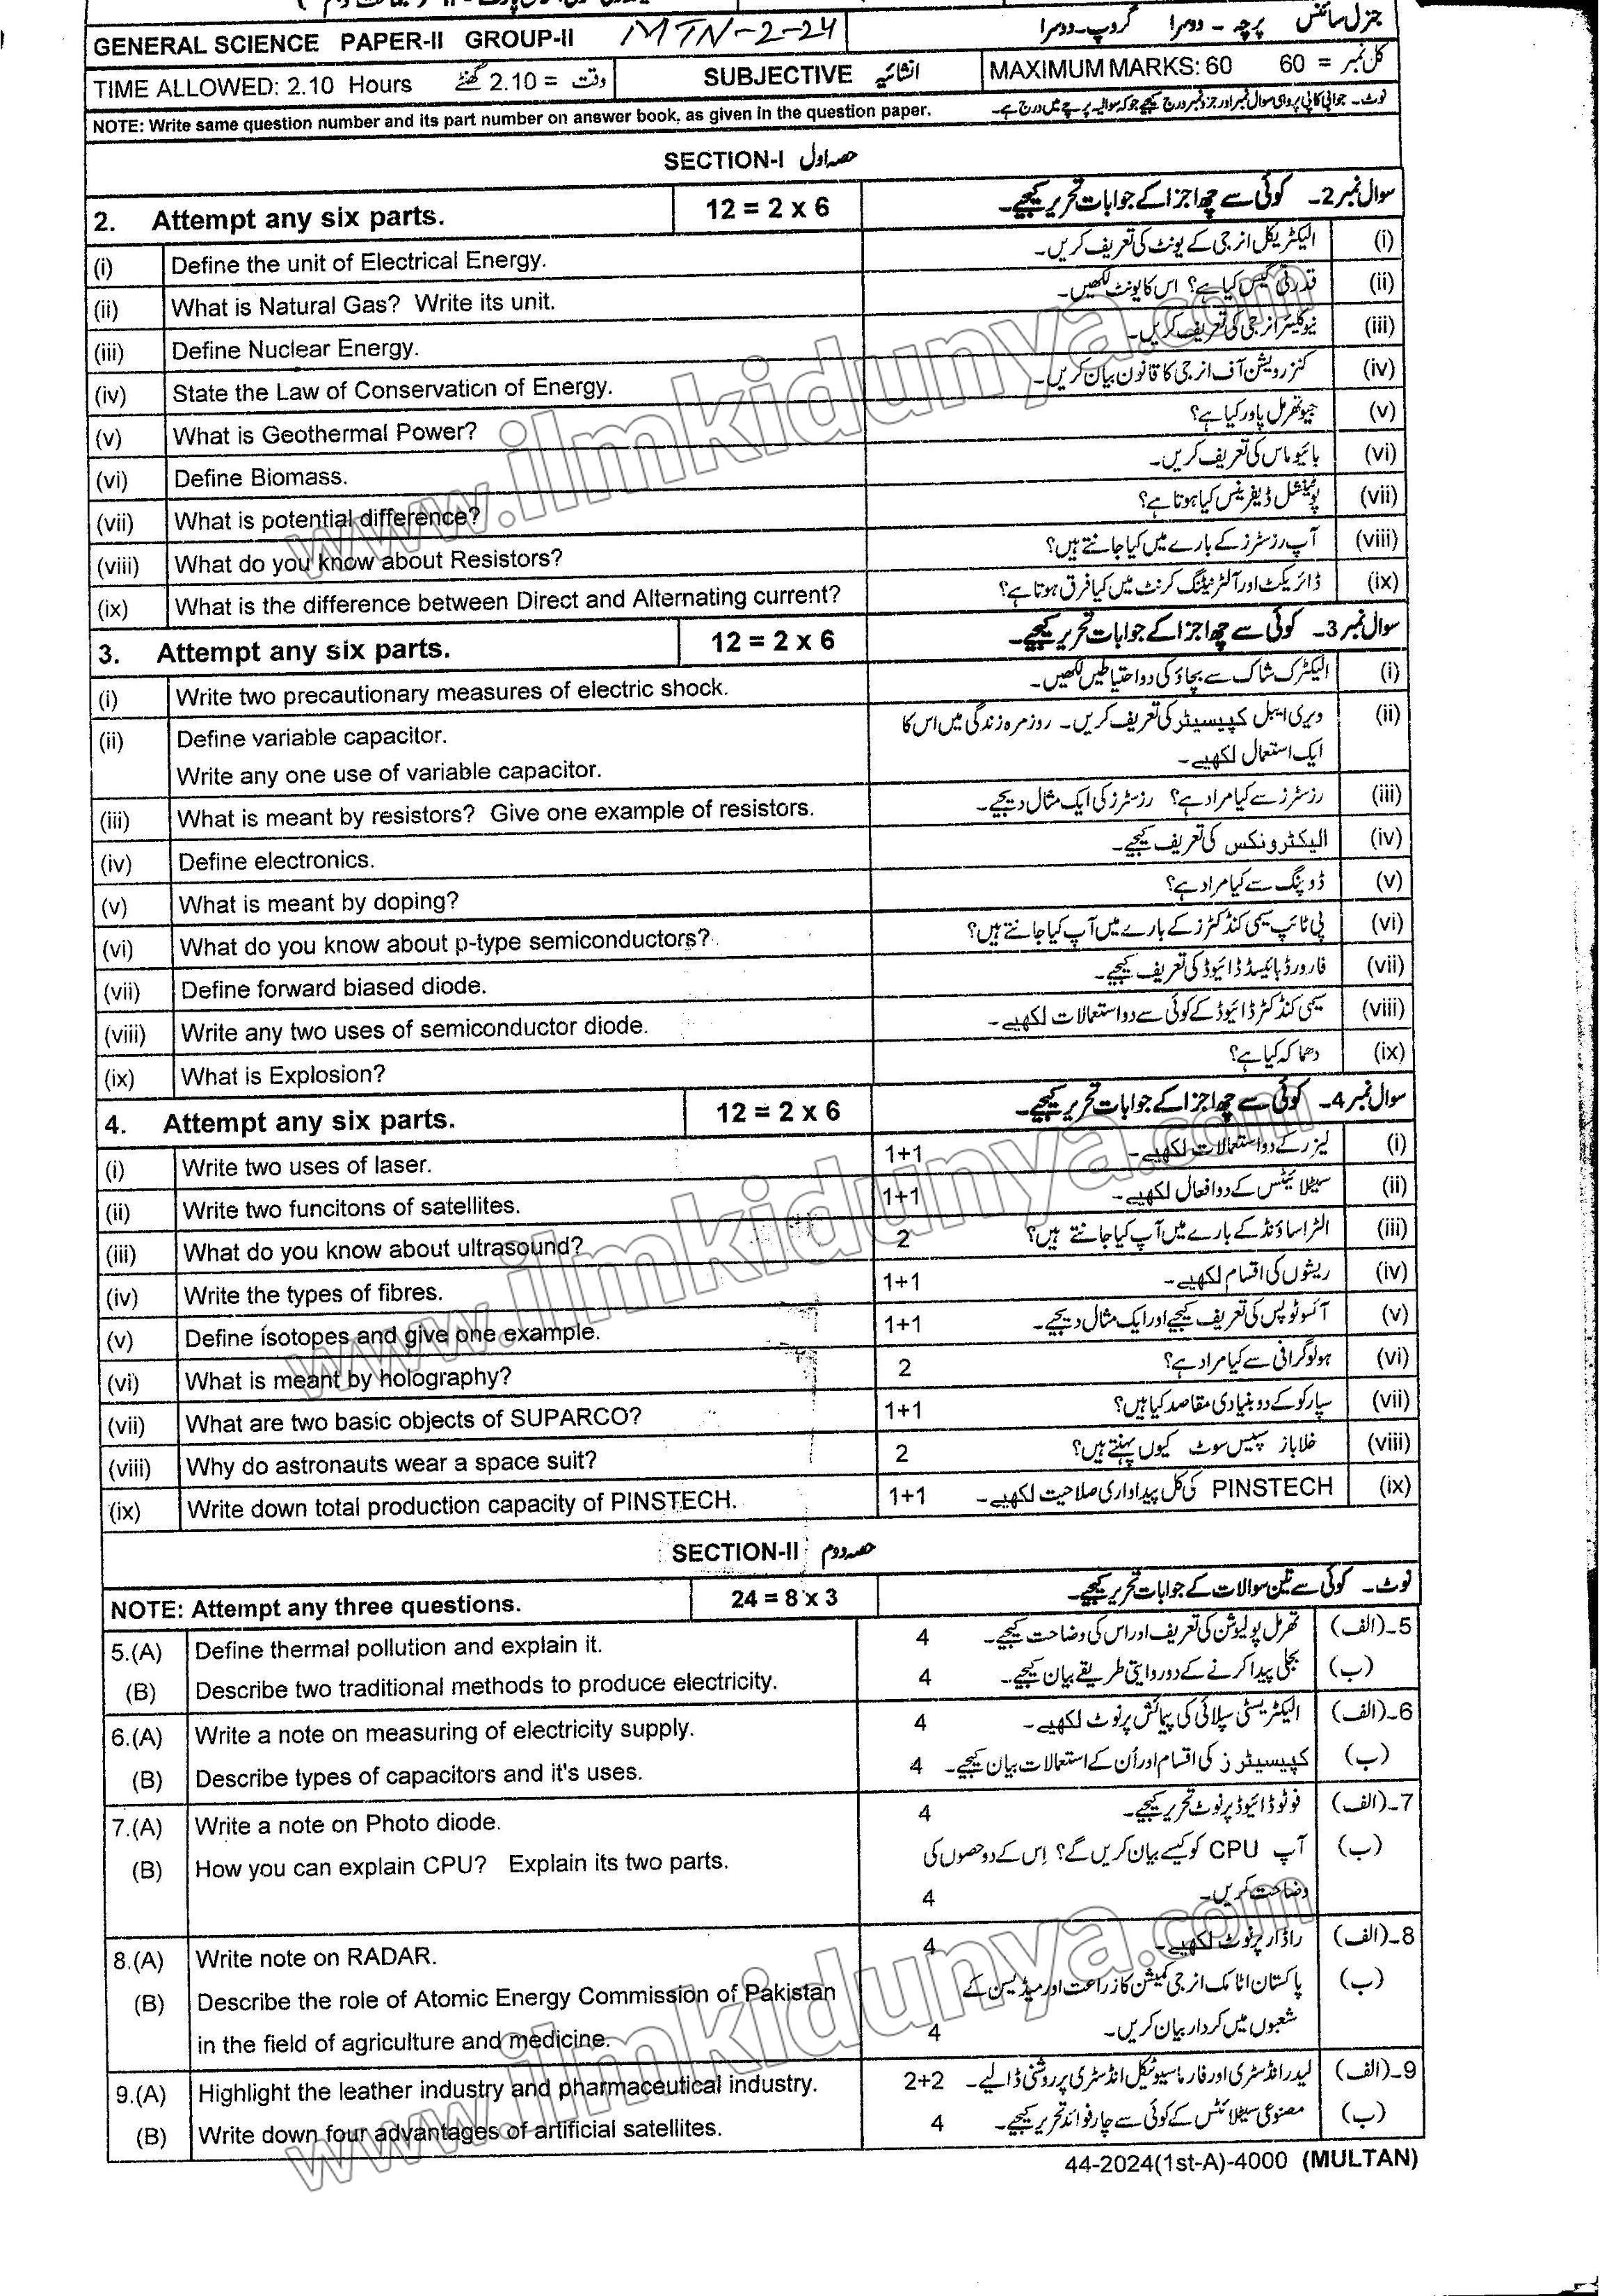 GENERAL SCIENCE PAPER-II GROUP-II MTN-2-24 جنرل سائنس پرچہ - دوسرا گروپ - دوسرا
TIME ALLOWED: 2.10 Hours وقت = 2.10 گھنٹے SUBJECTIVE انشائیہ MAXIMUM MARKS: 60 کل نمبر = 60
NOTE: Write same question number and its part number on answer book, as given in the question paper. نوٹ - جوابی کاپی پر وہی سوال نمبر اور جزو نمبر درج کیجیے جو کہ سوالیہ پرچے میں درج ہے۔
SECTION-I حصہ اول
2. Attempt any six parts. 12 = 2 x 6 سوال نمبر 2- کوئی سے چھ اجزا کے جوابات تحریر کیجیے۔
(i) Define the unit of Electrical Energy. الیکٹریکل انرجی کے یونٹ کی تعریف کریں۔ (i)
(ii) What is Natural Gas? Write its unit. قدرتی گیس کیا ہے؟ اس کا یونٹ لکھیں۔ (ii)
(iii) Define Nuclear Energy. نیوکلیئر انرجی کی تعریف کریں۔ (iii)
(iv) State the Law of Conservation of Energy. کنزرویشن آف انرجی کا قانون بیان کریں۔ (iv)
(v) What is Geothermal Power? جیوتھرمل پاور کیا ہے؟ (v)
(vi) Define Biomass. بائیوماس کی تعریف کریں۔ (vi)
(vii) What is potential difference? پوٹینشل ڈیفرینس کیا ہوتا ہے؟ (vii)
(viii) What do you know about Resistors? آپ رزسٹرز کے بارے میں کیا جانتے ہیں؟ (viii)
(ix) What is the difference between Direct and Alternating current? ڈائریکٹ اور آلٹرنیٹنگ کرنٹ میں کیا فرق ہوتا ہے؟ (ix)
3. Attempt any six parts. 12 = 2 x 6 سوال نمبر 3- کوئی سے چھ اجزا کے جوابات تحریر کیجیے۔
(i) Write two precautionary measures of electric shock. الیکٹرک شاک سے بچاؤ کی دو احتیاطیں لکھیں۔ (i)
(ii) Define variable capacitor. ویری ایبل کپیسیٹر کی تعریف کریں۔ روزمرہ زندگی میں اس کا (ii)
Write any one use of variable capacitor. ایک استعمال لکھیے۔
(iii) What is meant by resistors? Give one example of resistors. رزسٹرز سے کیا مراد ہے؟ رزسٹرز کی ایک مثال دیجیے۔ (iii)
(iv) Define electronics. الیکٹرونکس کی تعریف کیجیے۔ (iv)
(v) What is meant by doping? ڈوپنگ سے کیا مراد ہے؟ (v)
(vi) What do you know about p-type semiconductors? پی ٹائپ سیمی کنڈکٹرز کے بارے میں آپ کیا جانتے ہیں؟ (vi)
(vii) Define forward biased diode. فارورڈ بائیسڈ ڈائیوڈ کی تعریف کیجیے۔ (vii)
(viii) Write any two uses of semiconductor diode. سیمی کنڈکٹر ڈائیوڈ کے کوئی سے دو استعمالات لکھیے۔ (viii)
(ix) What is Explosion? دھماکہ کیا ہے؟ (ix)
4. Attempt any six parts. 12 = 2 x 6 سوال نمبر 4- کوئی سے چھ اجزا کے جوابات تحریر کیجیے۔
(i) Write two uses of laser. 1+1 لیزر کے دو استعمالات لکھیے۔ (i)
(ii) Write two funcitons of satellites. 1+1 سیٹلائیٹس کے دو افعال لکھیے۔ (ii)
(iii) What do you know about ultrasound? 2 الٹراساؤنڈ کے بارے میں آپ کیا جانتے ہیں؟ (iii)
(iv) Write the types of fibres. 1+1 ریشوں کی اقسام لکھیے۔ (iv)
(v) Define isotopes and give one example. 1+1 آئسوٹوپس کی تعریف کیجیے اور ایک مثال دیجیے۔ (v)
(vi) What is meant by holography? 2 ہولوگرافی سے کیا مراد ہے؟ (vi)
(vii) What are two basic objects of SUPARCO? 1+1 سپارکو کے دو بنیادی مقاصد کیا ہیں؟ (vii)
(viii) Why do astronauts wear a space suit? 2 خلاباز سپیس سوٹ کیوں پہنتے ہیں؟ (viii)
(ix) Write down total production capacity of PINSTECH. 1+1 PINSTECH کی کل پیداواری صلاحیت لکھیے۔ (ix)
SECTION-II حصہ دوم
NOTE: Attempt any three questions. 24 = 8 x 3 نوٹ - کوئی سے تین سوالات کے جوابات تحریر کیجیے۔
5.(A) Define thermal pollution and explain it. 4 تھرمل پولیوشن کی تعریف اور اس کی وضاحت کیجیے۔ 5-(الف)
(B) Describe two traditional methods to produce electricity. 4 بجلی پیدا کرنے کے دو روایتی طریقے بیان کیجیے۔ (ب)
6.(A) Write a note on measuring of electricity supply. 4 الیکٹریسٹی سپلائی کی پیمائش پر نوٹ لکھیے۔ 6-(الف)
(B) Describe types of capacitors and it's uses. 4 کپیسیٹرز کی اقسام اور اُن کے استعمالات بیان کیجیے۔ (ب)
7.(A) Write a note on Photo diode. 4 فوٹو ڈائیوڈ پر نوٹ تحریر کیجیے۔ 7-(الف)
(B) How you can explain CPU? Explain its two parts. آپ CPU کو کیسے بیان کریں گے؟ اِس کے دو حصوں کی (ب)
4 وضاحت کریں۔
8.(A) Write note on RADAR. 4 راڈار پر نوٹ لکھیے۔ 8-(الف)
(B) Describe the role of Atomic Energy Commission of Pakistan پاکستان اٹامک انرجی کمیشن کا زراعت اور میڈیسن کے (ب)
in the field of agriculture and medicine. 4 شعبوں میں کردار بیان کریں۔
9.(A) Highlight the leather industry and pharmaceutical industry. 2+2 لیدر انڈسٹری اور فارماسیوٹیکل انڈسٹری پر روشنی ڈالیے۔ 9-(الف)
(B) Write down four advantages of artificial satellites. 4 مصنوعی سیٹلائٹس کے کوئی سے چار فوائد تحریر کیجیے۔ (ب)
44-2024(1st-A)-4000 (MULTAN)
www.ilmkidunya.com
www.ilmkidunya.com
www.ilmkidunya.com